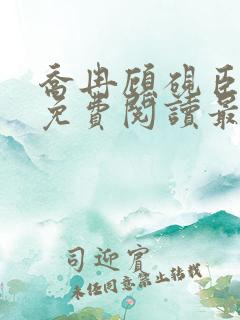 喬冉顧硯臣
免費閱讀最
司迎賓
未经同意禁止转载